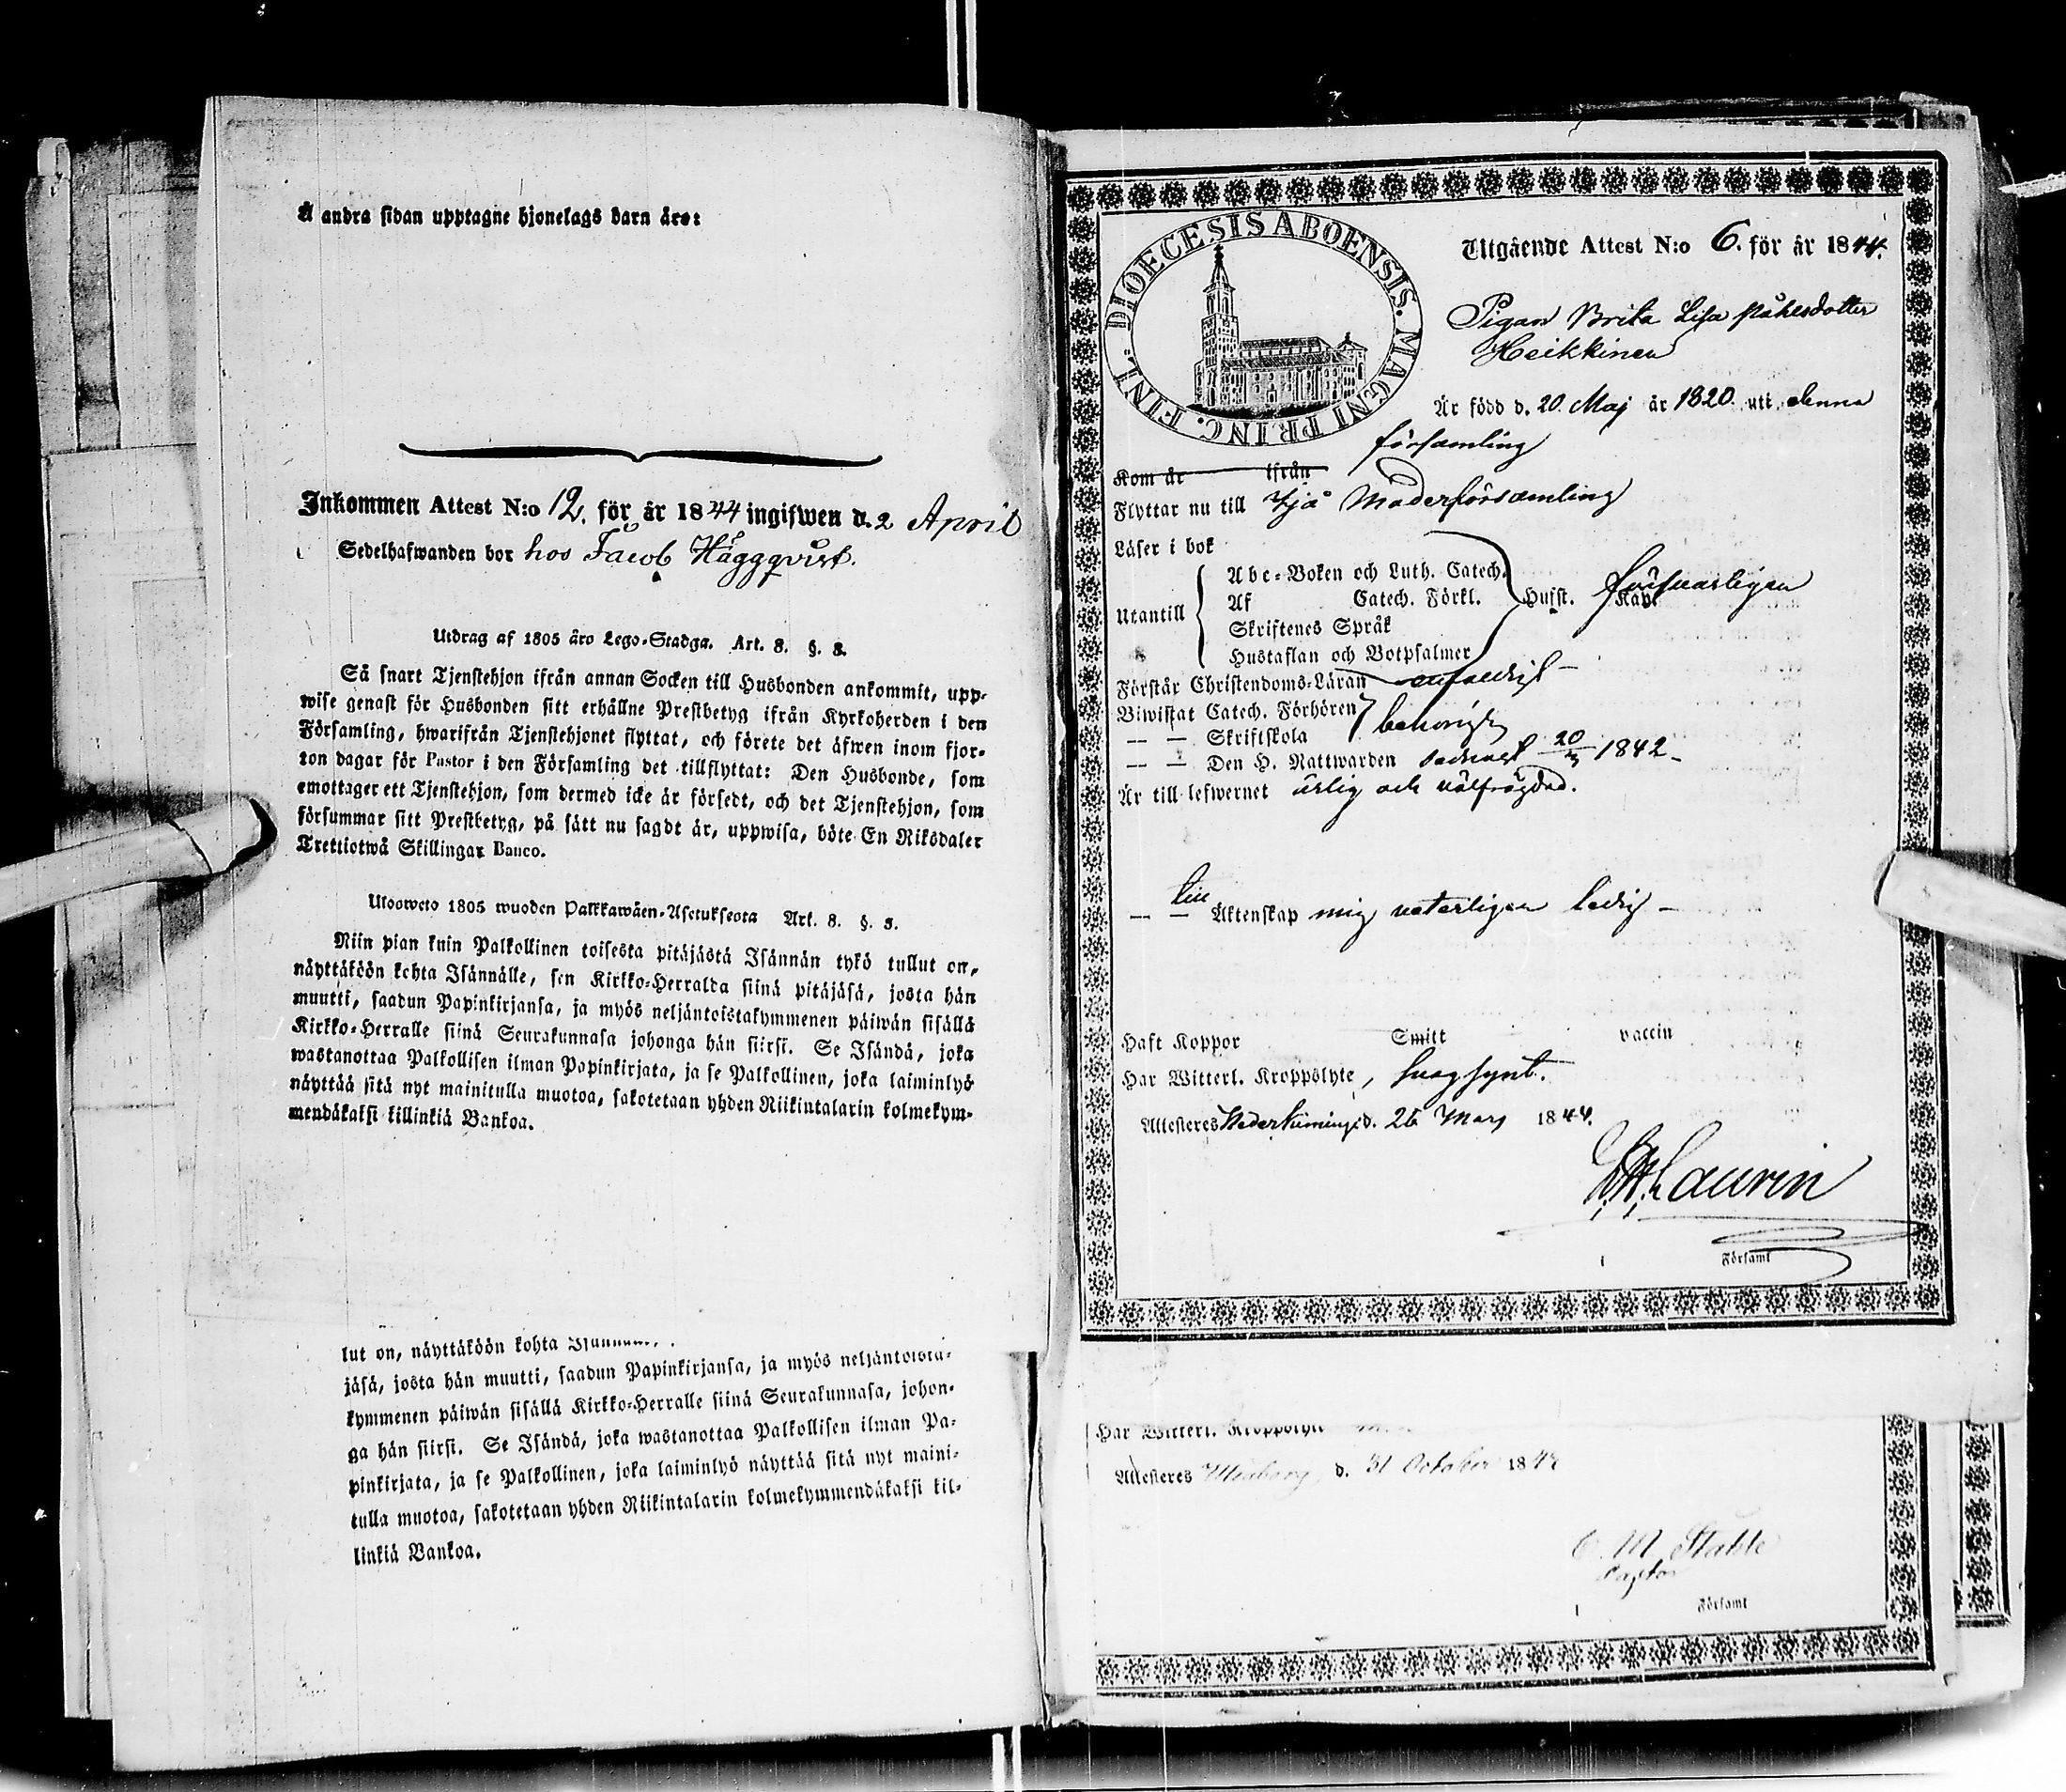 Å andra sidan upptagne hjonelags barn äro:
Inkommen Attest N:o 12. för år 1844 ingifwen d. 2 April
Sedelhafwanden bor hos Jacob Häggqvist.
Utdrag af 1805 års Lego-Stadga. Art. 8. §. 8.
Så snart Tjenstehjon ifrån annan Socken till Husbonden ankommit, upp-
wise genast för Husbonden sitt erhållne Prestbetyg ifrån Kyrkoherden i den
Församling, hwarifrån Tjenstehjonet flyttat, och förete det äfwen inom fjor-
ton dagar för Pastor i den Församling det tillflyttat: Den Husbonde, som
emottager ett Tjenstehjon, som dermed icke är försedt, och det Tjenstehjon, som
försummar sitt Prestbetyg, på sätt nu sagdt är, uppwisa, böte En Riksdaler
Trettiotwå Skillingar Banco.
Utosweto 1805 wuoden Palkkawäen-Asetuksesta Art. 8. §. 3.
Niin pian kuin Palkollinen toisesta pitäjästä Isännän tykö tullut on,
näyttäköön kohta Isännälle, sen Kirkko-Herralda siinä pitäjäsä, josta hän
muutti, saadun Papinkirjansa, ja myös neljäntoistakymmenen päiwän sisällä
Kirkko-Herralle siinä Seurakunnasa johonga hän siirsi. Se Isändä, joka
wastanottaa Palkollisen ilman Papinkirjata, ja se Palkollinen, joka laiminlyö
näyttää sitä nyt mainitulla muotoa, sakotetaan yhden Riikintalarin kolmekym-
mendäkaksi killinkiä Bankoa.
lut on, näyttäköön kohta
jäsä, josta hän muutti, saadun Papinkirjansa, ja myös neljäntoista-
kymmenen päiwän sisällä Kirkko-Herralle siinä Seurakunnasa, johon-
ga hän siirsi. Se Isändä, joka wastanottaa Palkollisen ilman Pa-
pinkirjata, ja se Palkollinen, joka laiminlyö näyttää sitä nyt maini-
tulla muotoa, sakotetaan yhden Riikintalarin kolmekymmendäkaksi kil-
linkiä Bankoa.
DIOECESIS ABOENSIS. MAGNI PRINC. FINL.
Utgående Attest N:o 6. för år 1844.
Pigan Brita Lisa Påhlsdotter
Heikkinen
Är född d. 20 Maj år 1820 uti denna
församling
Kom år ifrån
Flyttar nu till Ijå Moderförsamling
Läser i bok
Utantill
Abc-Boken och Luth. Catech.
Af Catech. Förkl.
Skriftenes Språk
Hustaflan och Botpsalmer
Hufst. Kap. försvarligen
Förstår Christendoms-Läran enfaldigt
Biwistat Catech. Förhören
— — Skriftskola behörigt
— — Den H. Nattwarden sednast 20/3 1842
Är till lefwernet ärlig och välfrägdad.
— — till Äktenskap mig veterligen ledig
Haft Koppor Smitt vaccin
Har Witterl. Kroppslyte, svagsynt.
Attesteres Nederkiminge d. 26 Mars 1844.
Laurin
Församl
Har Witterl. Kroppslyte
Attesteres Uleåborg d. 31 October 184
C. M. Stable
Pastor
i Församl